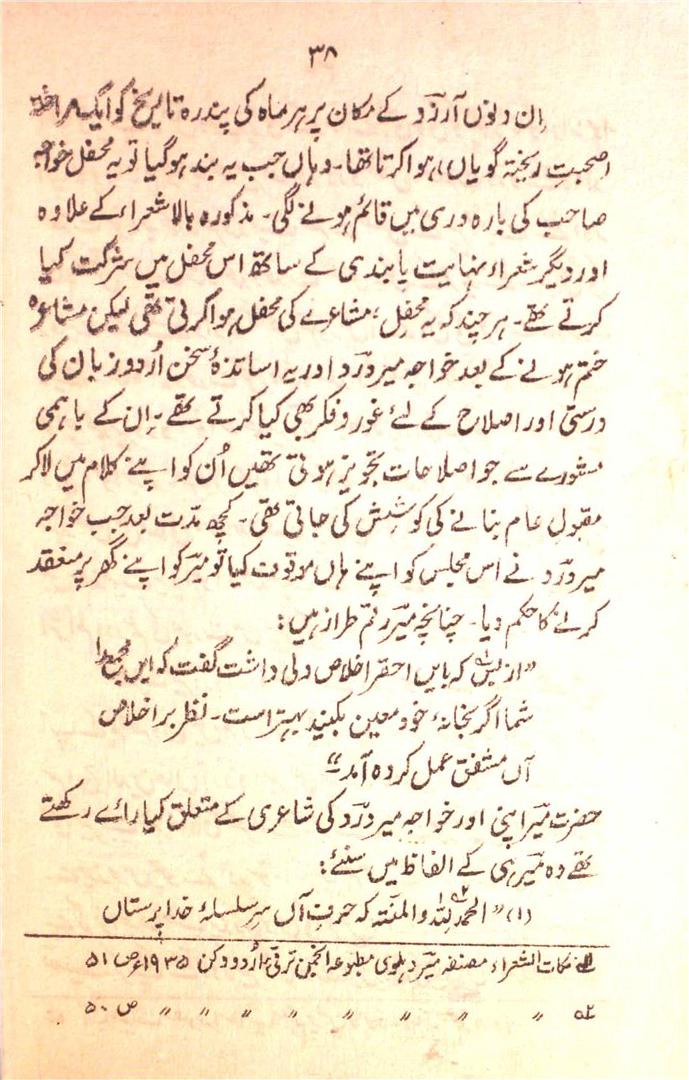 ۳۸
اِن دنوں آرزو کے مکان پر ہر ماہ کی پندرہ تاریخ کو ایک
صحبتِ ریختہ گویاں، ہوا کرتا تھا۔ وہاں جب یہ بند ہوگیا تو یہ محفل خواجہ
صاحب کی بارہ دری میں قائم ہونے لگی۔ مذکورہ بالا شعراء کے علاوہ
اور دیگر شعراء نہایت پابندی کے ساتھ اس محفل میں شرکت کیا
کرتے تھے۔ ہر چند کہ یہ محفل، مشاعرے کی محفل ہوا کرتی تھی لیکن مشاعرہ
ختم ہونے کے بعد خواجہ میر درد اور یہ اساتذۂ سخن اُردو زبان کی
درستی اور اصلاح کے لئے غور و فکر بھی کیا کرتے تھے۔ اِن کے باہمی
مشورے سے جو اصلاحات تجویز ہوتی تھیں اُن کو اپنے کلام میں لاکر
مقبولِ عام بنانے کی کوشش کی جاتی تھی۔ کچھ مدّت بعد جب خواجہ
میر درد نے اس مجلس کو اپنے ہاں موقوف کیا تو میر کو اپنے گھر پر منعقد
کرنے کا حکم دیا۔ چنانچہ میر رقم طراز ہیں:
"از بس کہ بایں احقر اخلاص دلی داشت گفت کہ ایں مجمع را
شما اگر بخانۂ خود معین بکنید بہتر است۔ نظر بر اخلاص
آں مشفق عمل کردہ آمد"
حضرت میر اپنی اور خواجہ میر درد کی شاعری کے متعلق کیا رائے رکھتے
تھے وہ میر ہی کے الفاظ میں سنئے:
(۱) "الحمد للہ والمنتہ کہ حرف آں سرِ سلسلۂ خدا پرستاں
لہ نکات الشعراء مصنفہ میر دہلوی مطبوعہ انجمن ترقیٔ اُردو دکن ۱۹۳۵ء ص ۵۱
۲ہ " " " " " " " " ص ۵۰